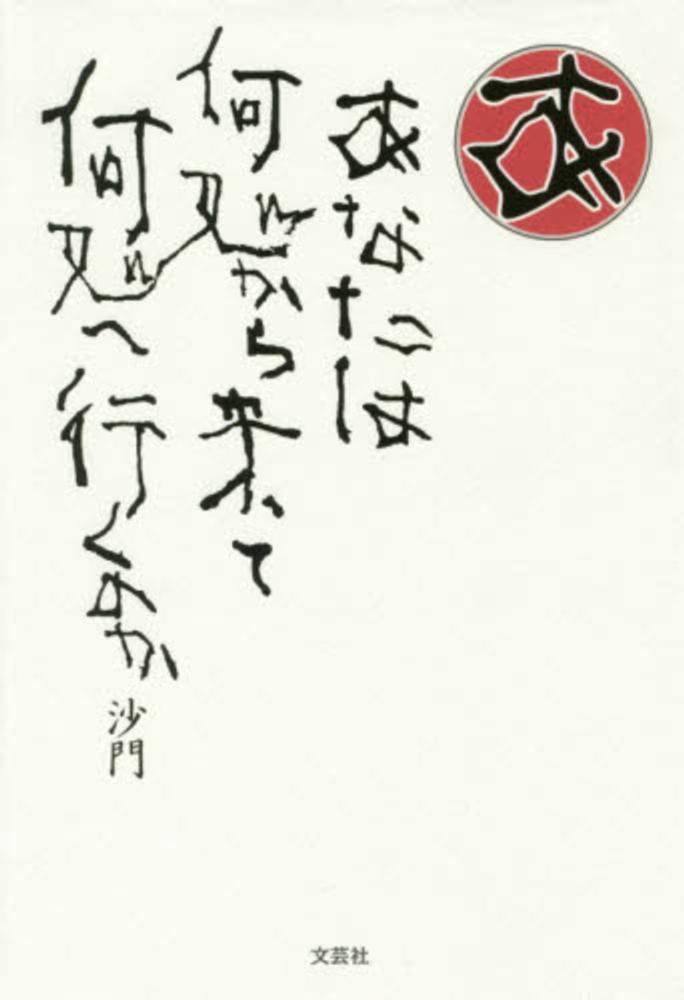 あ
あなたは
何処から来て
何処へ行くのか
沙門
文芸社